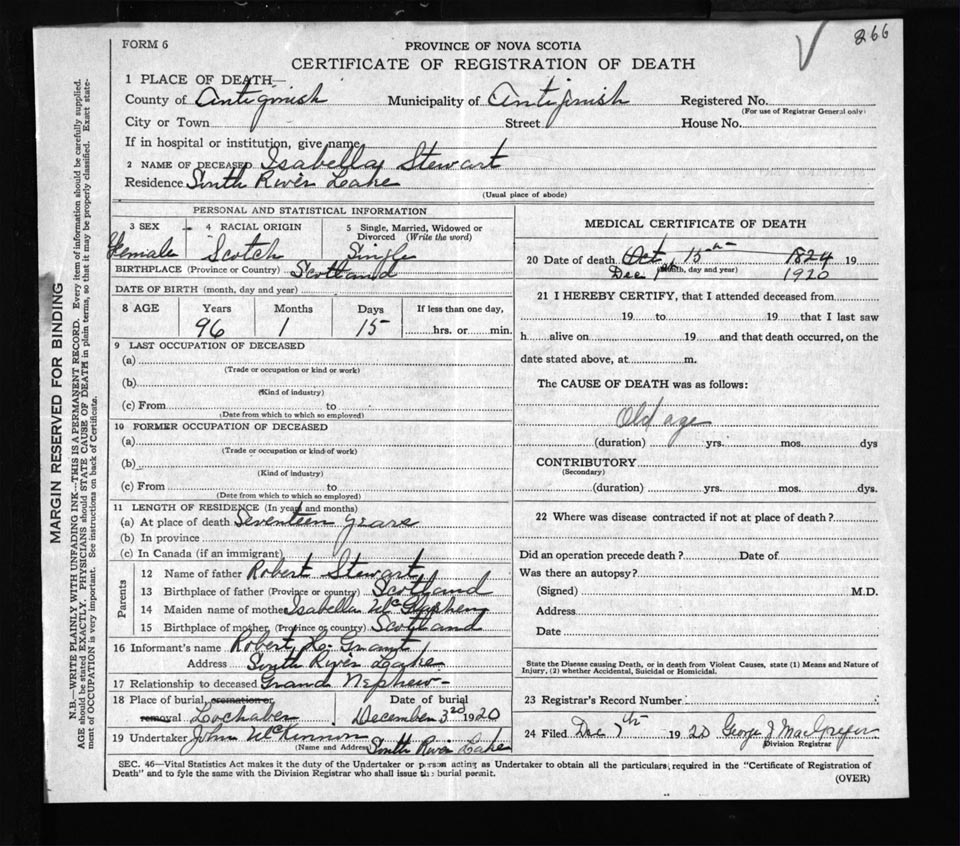 266
FORM 6
PROVINCE OF NOVA SCOTIA
CERTIFICATE OF REGISTRATION OF DEATH
1 PLACE OF DEATH—
County of Antigonish Municipality of Antigonish Registered No.
(For use of Registrar General only)
City or Town Street House No.
If in hospital or institution, give name
2 NAME OF DECEASED Isabella Stewart
Residence South River Lake
(Usual place of abode)
PERSONAL AND STATISTICAL INFORMATION
3 SEX 4 RACIAL ORIGIN 5 Single, Married, Widowed or
Divorced (Write the word)
Female Scotch Single
BIRTHPLACE (Province or Country) Scotland
DATE OF BIRTH (month, day and year)
8 AGE Years Months Days If less than one day,
96 1 15 hrs. or min.
9 LAST OCCUPATION OF DECEASED
(a)
(Trade or occupation or kind or work)
(b)
(Kind of industry)
(c) From to
(Date from which to which so employed)
10 FORMER OCCUPATION OF DECEASED
(a)
(Trade or occupation or kind of work)
(b)
(Kind of industry)
(c) From to
(Date from which to which so employed)
11 LENGTH OF RESIDENCE (In years and months)
(a) At place of death Seventeen years
(b) In province
(c) In Canada (if an immigrant)
Parents
12 Name of father Robert Stewart
13 Birthplace of father (Province or country) Scotland
14 Maiden name of mother Isabella
15 Birthplace of mother (Province or country) Scotland
16 Informant's name Robert H. Grant
Address South River Lake
17 Relationship to deceased Grand Nephew
18 Place of burial, cremation or Date of burial
removal Lochaber December 3rd 1920
19 Undertaker John McKinnon
(Name and Address) South River Lake
MEDICAL CERTIFICATE OF DEATH
20 Date of death Oct 15th 1824 19
Dec 1st (Month, day and year) 1920
21 I HEREBY CERTIFY, that I attended deceased from
19 to 19 that I last saw
h alive on 19 and that death occurred, on the
date stated above, at m.
The CAUSE OF DEATH was as follows:
Old age
(duration) yrs. mos. dys
CONTRIBUTORY
(Secondary)
(duration) yrs. mos. dys.
22 Where was disease contracted if not at place of death?
Did an operation precede death? Date of
Was there an autopsy?
(Signed) M.D.
Address
Date
State the Disease causing Death, or in death from Violent Causes, state (1) Means and Nature of
Injury, (2) whether Accidental, Suicidal or Homicidal.
23 Registrar's Record Number
24 Filed Dec 7th 1920 George J MacGregor
Division Registrar
SEC. 46—Vital Statistics Act makes it the duty of the Undertaker or person acting as Undertaker to obtain all the particulars required in the "Certificate of Registration of
Death" and to fyle the same with the Division Registrar who shall issue the burial permit.
(OVER)
MARGIN RESERVED FOR BINDING
N.B.—WRITE PLAINLY WITH UNFADING INK—THIS IS A PERMANENT RECORD. Every item of information should be carefully supplied.
AGE should be stated EXACTLY. PHYSICIANS should STATE CAUSE OF DEATH in plain terms, so that it may be properly classified. Exact state-
ment of OCCUPATION is very important. See instructions on back of Certificate.